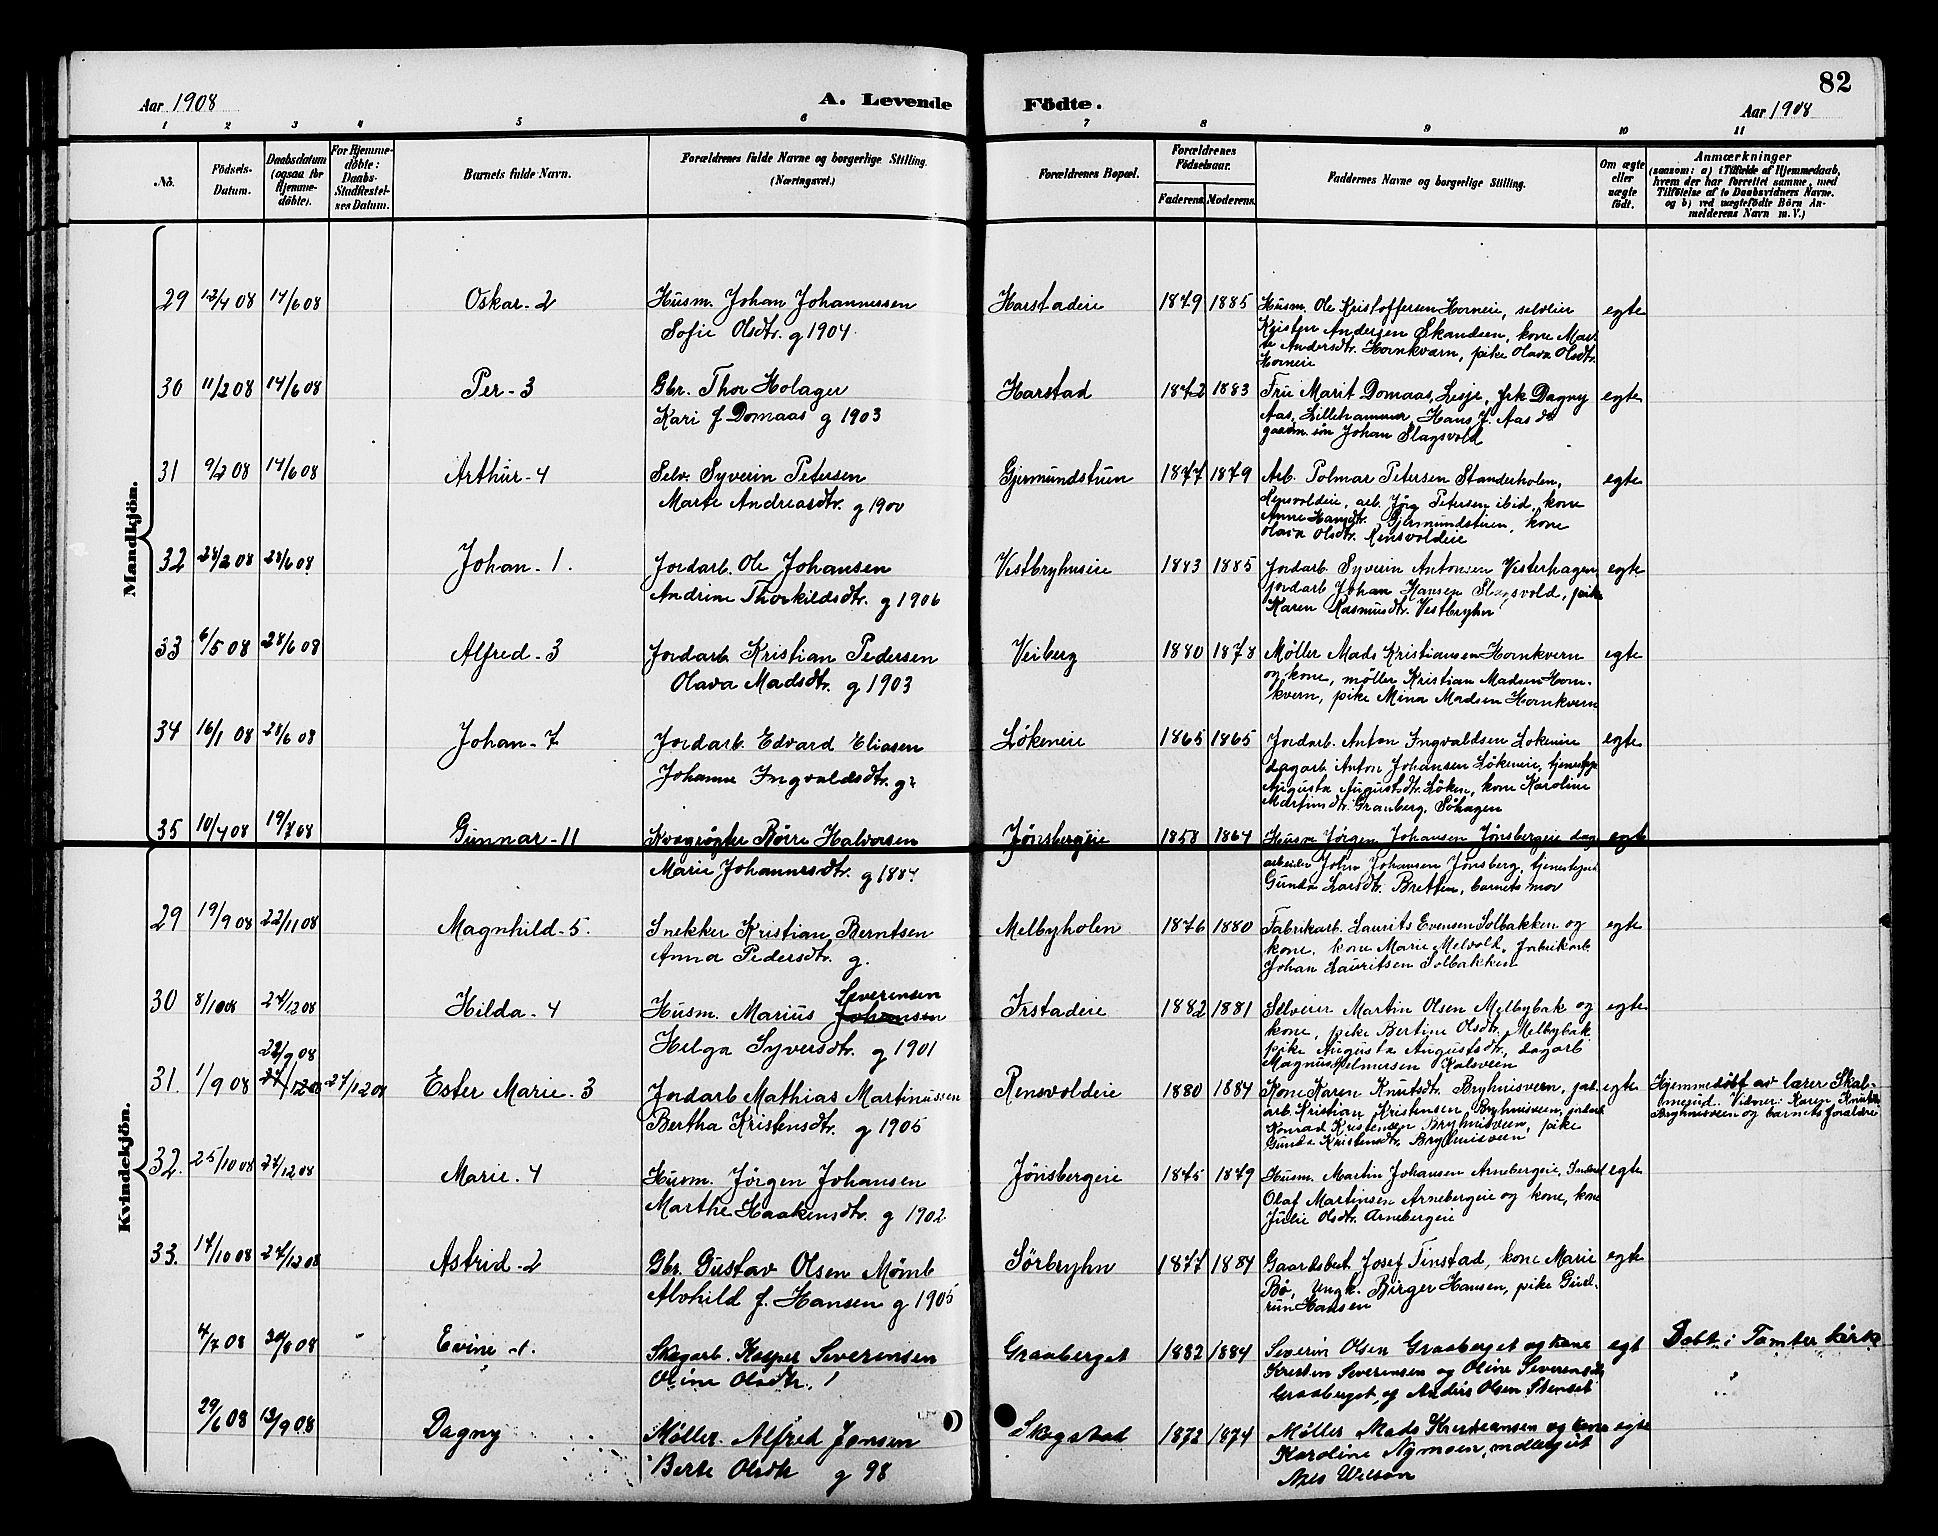 82
Aar 1908
A. Levende Födte.
Aar 1908
1 2 3 4 5 6 7 8 9 10 11
No.
Födsels-
Datum.
Daabsdatum
(ogsaa for
Hjemme-
döbte).
For Hjemme-
döbte:
Daabs-
Stadfestel-
ses Datum.
Barnets fulde Navn.
Forældrenes fulde Navne og borgerlige Stilling.
(Næringsvei.)
Forældrenes Bopæl.
Forældrenes
Födselsaar.
Faderens. Moderens.
Faddernes Navne og borgerlige Stilling.
Om ægte
eller
uægte
født.
Anmærkninger
(saasom: a) i Tilfælde af Hjemmedaab,
hvem der har forrettet samme, med
Tilföielse af to Daabsvidners Navne.
og b) ved uægtefödte Börn An-
melderens Navn m. V.)
Mandkjön.
29 12/4 08 14/6 08 Oskar - 2 Husm. Johan Johannessen Harstadeie 1879 1885 Husm. Ole Kristoffersen Horneie, selveier egte
Sofie Olsdtr. g 1904 Kristen Andersen Skandsen, kone Mar-
te Andersdtr. Hornkværn, pike Olava Olsdtr.
Horneie
30 11/2 08 14/6 08 Per - 3 Gbr. Thor Holager Harstad 1872 1883 Fru Marit Domaas, Lesje, frk Dagny egte
Kari f Domaas g 1903 Aas, Lillehammer, Hans J. Aas
gaardm. søn Johan Slagsvold
31 9/2 08 14/6 08 Arthur - 4 Selv. Syverin Petersen Gjermundstuen 1877 1879 Arb. Polmar Petersen Standerholen, egte
Marte Andreasdtr. g 1900 Rensvoldeie, arb. Jörg Petersen ibid, kone
Anne Hansdtr. Gjermundstuen, kone
Olava Olsdtr. Rensvoldeie
32 28/2 08 28/6 08 Johan - 1. Jordarb. Ole Johansen Vestbryhnseie 1883 1885 Jordarb Syverin Antonsen Vesterhagen egte
Andrine Thorkildsdtr. g 1906 jordarb Johan Hansen Slagsvold, pike
Karen Rasmusdtr. Vestbryhn
33 6/5 08 28/6 08 Alfred - 3 Jordarb. Kristian Pedersen Veiberg 1880 1878 Møller Mads Kristiansen Hornkvern egte
Olava Madsdtr. g 1903 og kone, møller Kristian Madsen Horn-
kvern, pike Mina Madsen Hornkvern
34 16/1 08 28/6 08 Johan - 7 Jordarb. Edvard Eliasen Lökeneie 1865 1865 Jordarb. Anton Ingvaldsen Lökeneie egte
Johanne Ingvaldsdtr. g. dagarb Anton Johansen Lökeneie, tjenestepge
Augusta Augustsdtr. Löken, kone Karoline
Martinsdtr. Granberg, Söhagen
35 10/4 08 19/7 08 Gunnar - 11 Kvægrögter Börre Halvorsen Jönsbergeie 1858 1864 Husm Jörgen Johansen Jönsbergeie dag- egte
Marie Johannesdtr. g 1884 arbeider John Johansen Jönsberg, tjenestepige
Gunda Larsdtr. Bretten, barnets mor
Kvindekjön.
29 19/9 08 22/11 08 Magnhild - 5. Snekker Kristian Berntsen Melbyholen 1876 1880 Fabrikarb. Laurits Evensen Solbakken og egte
Anna Pedersdtr. g. kone, kone Marie Melvold, fabrikarb
Johan Lauritsen Solbakken
30 8/10 08 27/12 08 Hilda - 4 Husm. Marius Johansen Severensen Irstadeie 1882 1881 Selveier Martin Olsen Melbybak og egte
Helga Syversdtr. g 1901 kone, pike Bertine Olsdtr. Melbybak
pike Augusta Augustsdtr, dagarb
Magnus Helmersen Kalsveen
22/9 08
31. 1/9 08 27/12 08 27/12 08 Ester Marie - 3 Jordarb Mathias Martinussen Rensvoldeie 1880 1884 Kone Karen Knutsdtr. Bryhnisveen, jord- egte Hjemmedöbt av lærer Skal-
Bertha Kristensdtr. g 1905 arb. Kristian Kristensen Bryhnisveen, jordarb mesrud. Vidner: Karen Knutsdtr
Konrad Kristensen Bryhnisveen, pike Bryhnisveen og barnets forældre
Gunda Kristensdtr. Bryhnisveen
32. 25/10 08 27/12 08 Marie - 4 Husm. Jörgen Johansen Jönsbergeie 1875 1879 Husm. Martin Johansen Arnebergeie, Inderst egte
Marthe Haakensdtr. g 1902 Olaf Martinsen Arnebergeie og kone, kone
Julie Olsdtr. Arnebergeie
33. 14/10 08 27/12 08 Astrid - 2 Gbr. Gustav Olsen Mömb Sörbryhn 1877 1884 Gaardsbest. Josef Finstad, kone Marie egte
Alvhild f. Hansen g 1905 Bö, ungk. Birger Hansen, pike Gud-
run Hansen
4/7 08 30/8 08 " Evine - 1. Skogarb. Kasper Severensen Graaberget 1882 1884 Severin Olsen Graaberget og kone egt Døbt i Tomter kirke
Oline Olsdtr. Kresten Severensen og Oline Severensdtr
Graaberget og Anders Olsen Stenset "
29/6 08 13/9 08 Dagny Møller Alfred Jonsen Skogstad 1872 1874 Møller Mads Kristiansen og kone egte
Berte Olsdtr g 98 Karoline Nymoen, møllegut
Nils Wilson